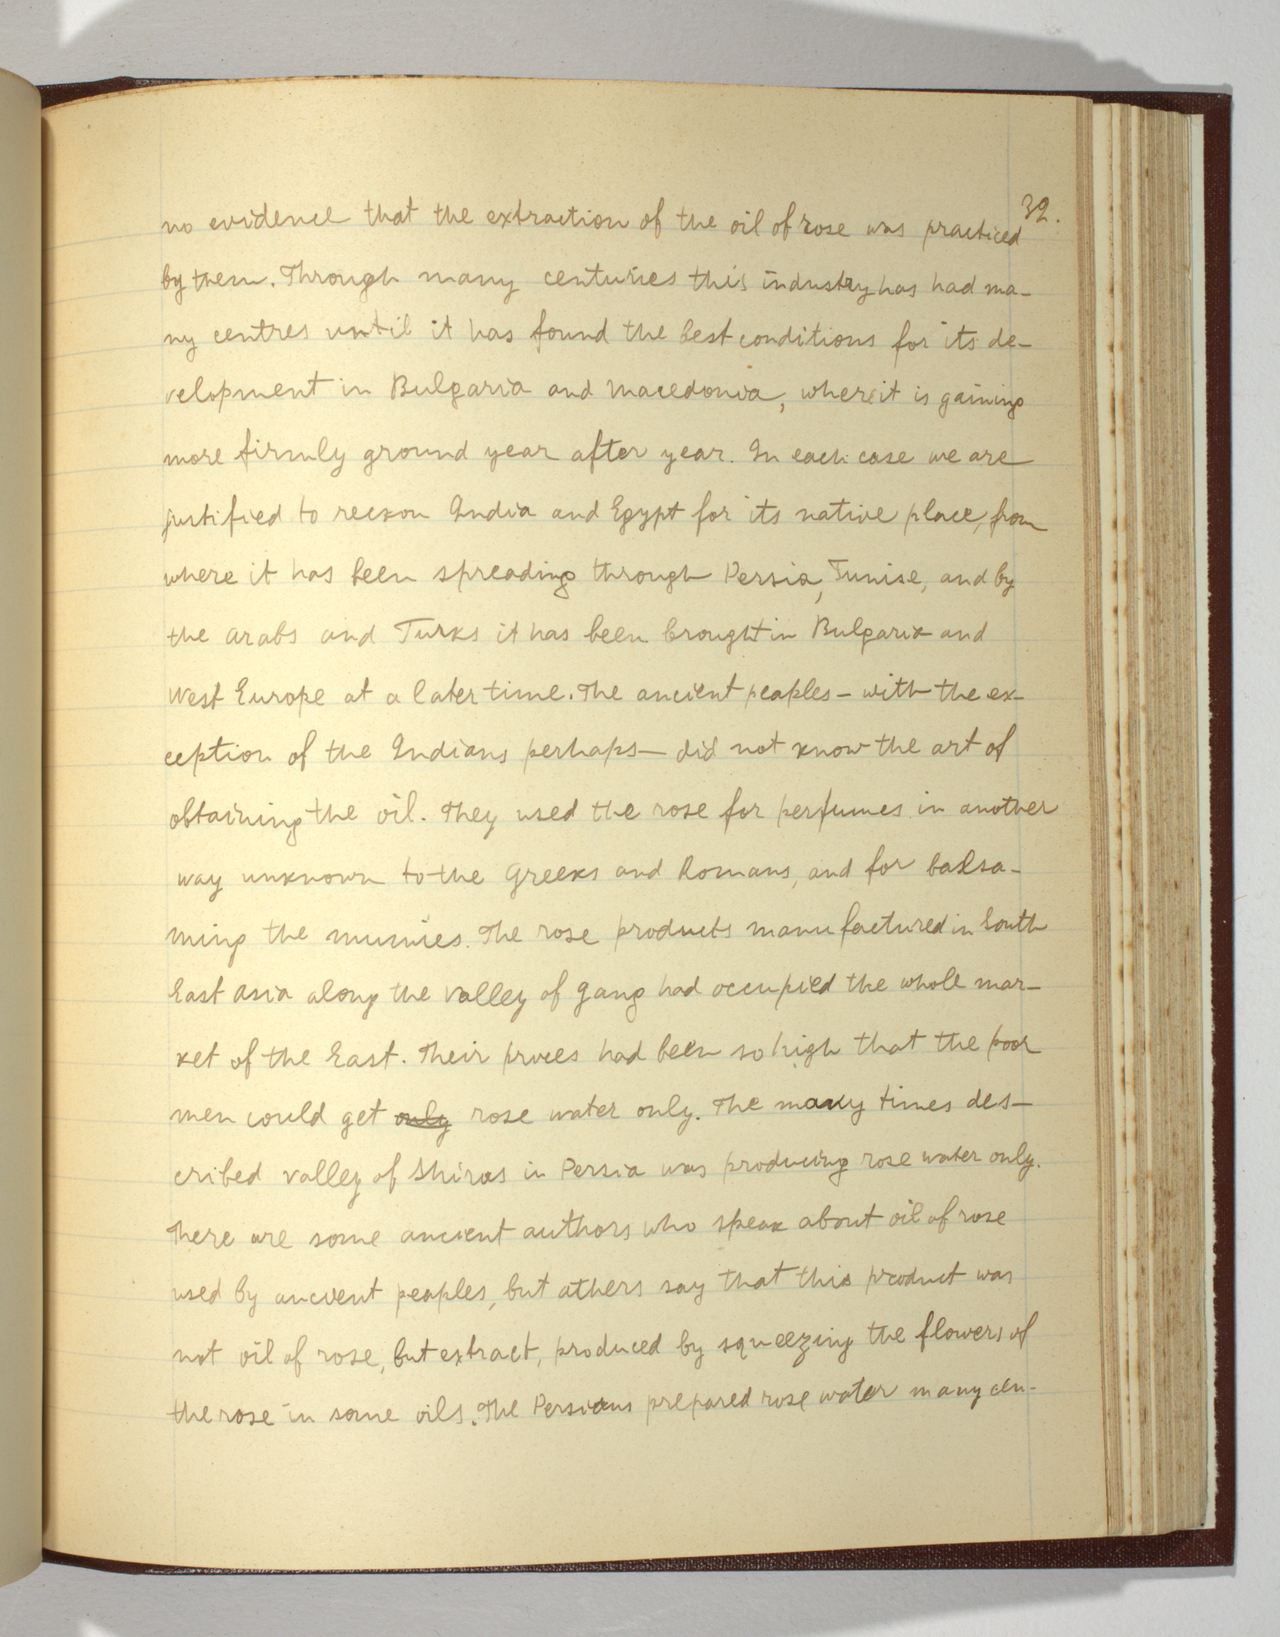 32.
no evidence that the extraction of the oil of rose was practiced
by them. Through many centuries this industry has had ma-
ny centres until it has found the best conditions for its de-
velopment in Bulgaria and Macedonia, where it is gaining
more firmly ground year after year. In each case we are
justified to reckon India and Egypt for its native place, from
where it has been spreading through Persia, Tunise, and by
the Arabs and Turks it has been brought in Bulgaria and
West Europe at a later time. The ancient peaples – with the ex-
ception of the Indians perhaps – did not know the art of
obtaining the oil. They used the rose for perfumes in another
way unknown to the Greeks and Romans, and for balsa-
ming the mumies. The rose products manufactured in South
East Asia along the valley of Gang had occupied the whole mar-
ket of the East. Their prices had been so high that the poor
men could get only rose water only. The many times des-
cribed valley of Shiras in Persia was producing rose water only.
There are some ancient authors who speak about oil of rose
used by ancient peaples, but others say that this product was
not oil of rose, but extract, produced by squeezing the flowers of
the rose in some oils. The Persians prepared rose water many cen-